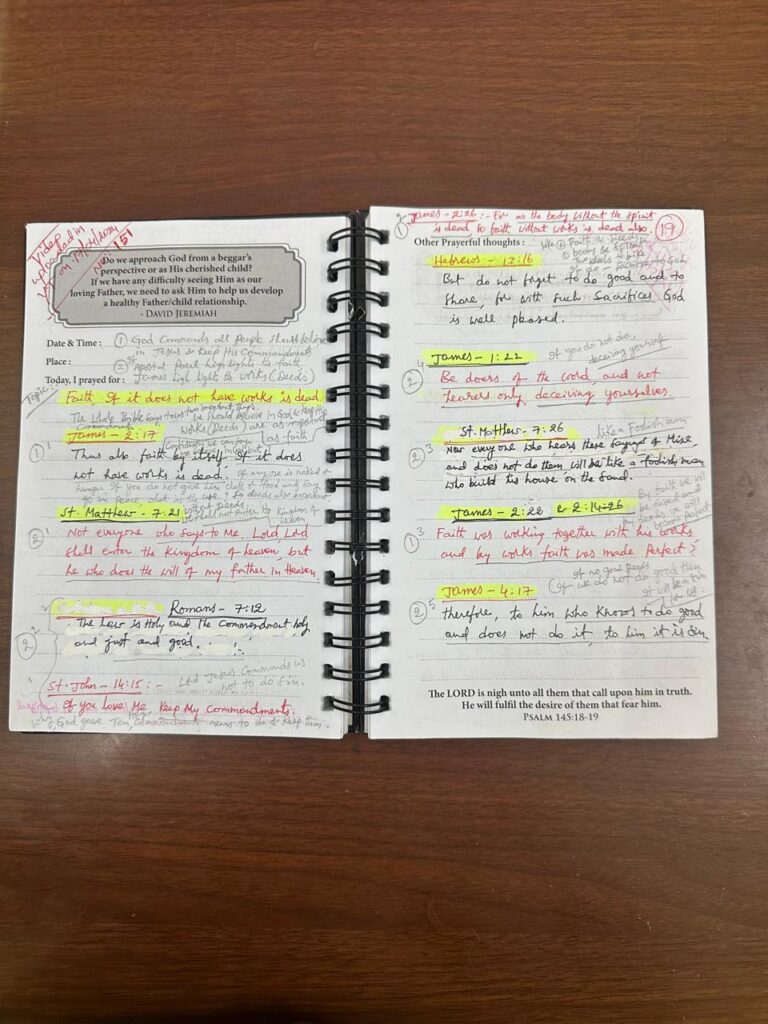 Video
uploaded in
on 17/04/2024
No: 151
Do we approach God from a beggar's
perspective or as His cherished child?
If we have any difficulty seeing Him as our
loving Father, we need to ask Him to help us develop
a healthy Father/child relationship.
- DAVID JEREMIAH
Date & Time : ① God Commands all People should believe
in Jesus & Keep His Commandments
Place : ② Apostal Paul high lights the faith
Today, I prayed for : James high light the works (Deeds)
Topic:
Faith If it does not have works is dead.
The whole Bible says two important things
We should believe in God & keep the
works (Deeds) are as important
as faith
James - 2:17
① Thus also faith by itself, if it does
not have works is dead.
St. Matthew - 7:21
② Not everyone who says to Me, Lord Lord
Shall enter the Kingdom of heaven, but
he who does the will of my father in Heaven.
Romans - 7:12
The Law is Holy and the Commandment holy
and just and good.
Lord Jesus Commands us
not to do sin.
St. John - 14:15 : -
If you love Me Keep My Commandments.
Why God gave Ten Commandments means to do & keep them.
① James - 2:26 :- For as the body without the spirit
is dead, so faith without works is dead also. ⑲
Other Prayerful thoughts :
Hebrews - 13:16
But do not forget to do good and to
share, for with such Sacrifices God
is well pleased.
James - 1:22
If you do not do
deceiving yourself
② Be doers of the word, and not
hearers only deceiving yourselves.
St. Matthew - 7:26
like a Foolish man
② Now everyone who hears these sayings of Mine
and does not do them will be like a foolish man
who build his house on the sand.
James - 2:22 & 2:14-26
By faith we will
① Faith was working together with his works
and by works faith was made Perfect?
James - 4:17
If we do not do good then
it will be a sin
② therefore, to him who knows to do good
and does not do it, to him it is sin
The LORD is nigh unto all them that call upon him in truth.
He will fulfil the desire of them that fear him.
PSALM 145:18-19